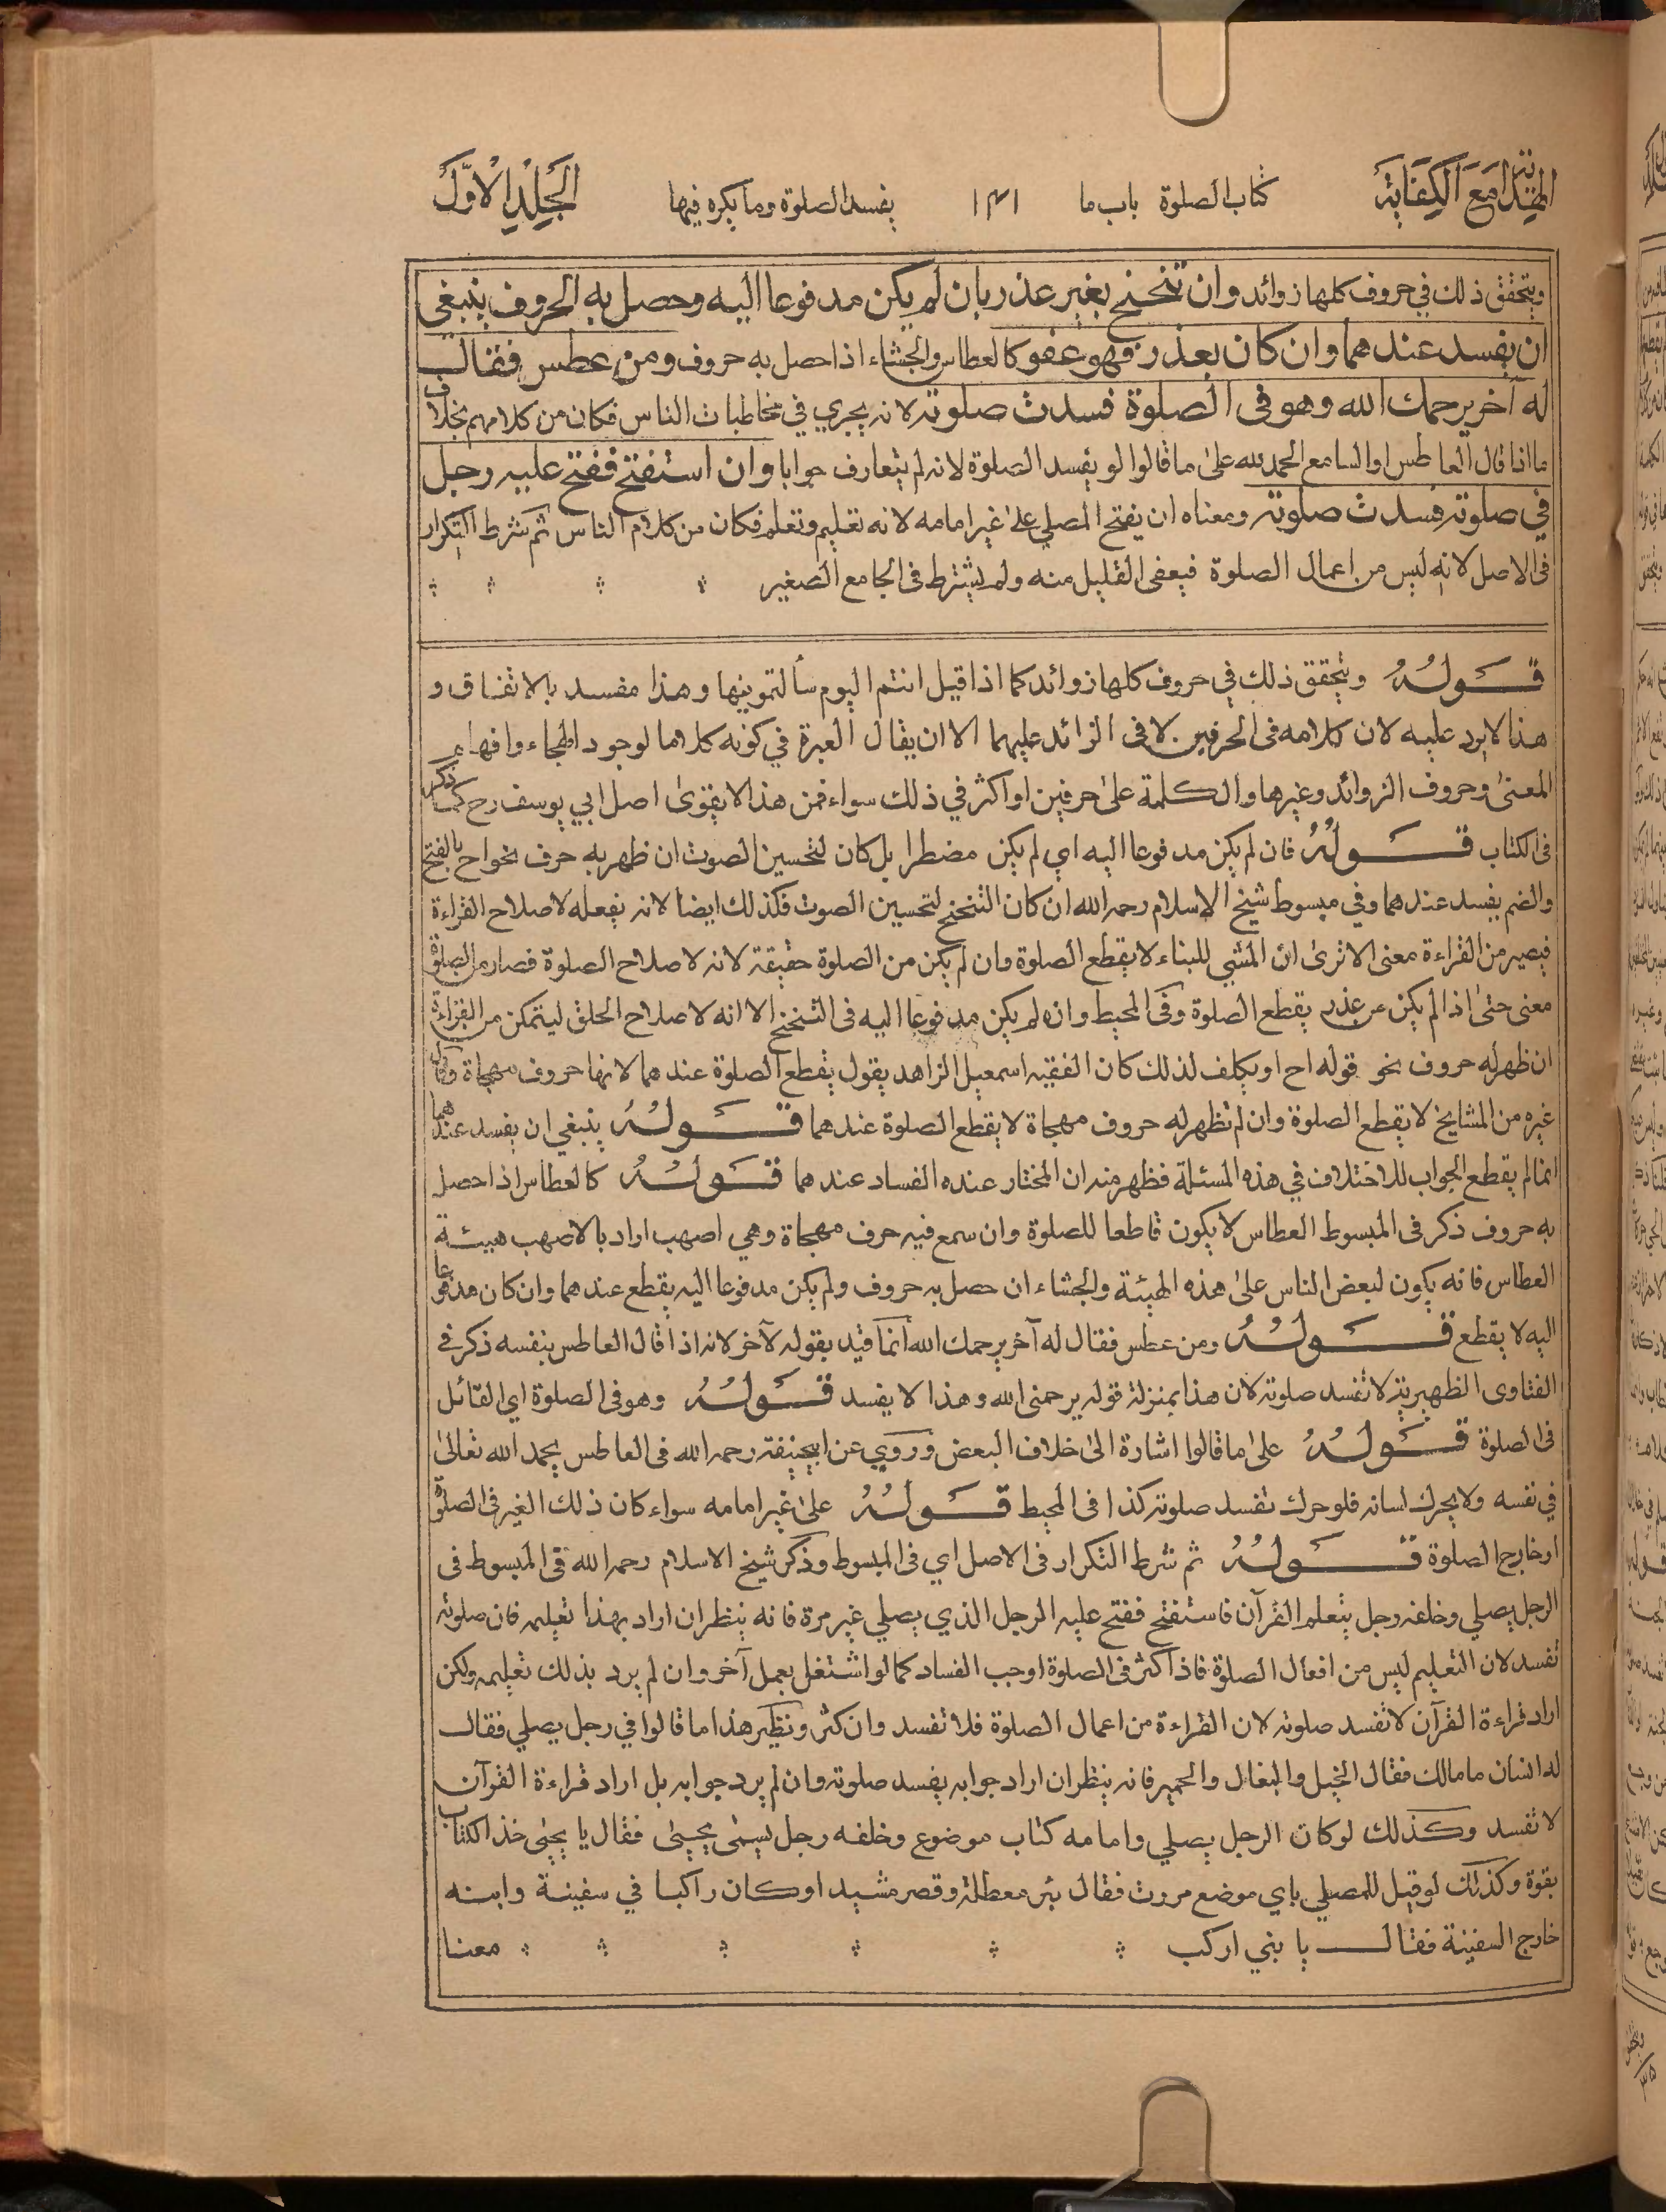 الهداية مع الكفاية كتاب الصلوة باب ما ١٣١ يفسد الصلوة وما يكره فيها الجلد الاول
ويتحقق ذلك في حروف كلها زوائد وان تنحنح بغير عذر بان لم يكن مدفوعا اليه وحصل به الحروف ينبغي
ان يفسد عندهما وان كان بعذر فهو عفو كالعطاس والجشاء اذا حصل به حروف ومن عطس فقال
له آخر يرحمك الله وهو فى الصلوة فسدت صلوته لانه يجري في مخاطبات الناس فكان من كلامهم بخلاف
ما اذا قال العاطس او السامع الحمد لله على ما قالوا لو يفسد الصلوة لانه لم يتعارف جوابا وان استفتح ففتح عليه رجل
في صلوته فسدت صلوته ومعناه ان يفتح المصلي على غير امامه لانه تعليم وتعلم فكان من كلام الناس ثم شرط التكرار
فى الاصل لانه ليس من اعمال الصلوة فيعفى القليل منه ولم يشترط فى الجامع الصغير
قولهُ ويتحقق ذلك في حروف كلها زوائد كما اذا قيل انتم اليوم سألتمونيها وهذا مفسد بالاتفاق و
هذا لا يرد عليه لان كلامه فى الحرفين لا فى الزائد عليهما الا ان يقال العبرة في كونه كلاما لوجود الهجاء وافهام
المعنى وحروف الزوائد وغيرها والكلمة على حرفين او اكثر في ذلك سواء فمن هذا لا يقوى اصل ابي يوسف رح كما ذكر
فى الكتاب قولهُ فان لم يكن مدفوعا اليه اي لم يكن مضطرا بل كان لتحسين الصوت ان ظهر به حرف نحو اح بالفتح
والضم يفسد عندهما وفي مبسوط شيخ الاسلام رحمه الله ان كان التنحنح لتحسين الصوت فكذلك ايضا لانه يفعله لاصلاح القراءة
فيصير من القراءة معنى الا ترى ان المشي للبناء لا يقطع الصلوة وان لم يكن من الصلوة حقيقة لانه لاصلاح الصلوة فصار من الصلوة
معنى حتى اذا لم يكن عن عذر يقطع الصلوة وفى المحيط وان لم يكن مدفوعا اليه فى التنحنح الا انه لاصلاح الحلق ليتمكن من القراءة
ان ظهر له حروف نحو قوله اح او يكلف لذلك كان الفقيه اسمعيل الزاهد يقول يقطع الصلوة عندهما لانها حروف مهجاة وقال
غيره من المشايخ لا يقطع الصلوة وان لم تظهر له حروف مهجاة لا يقطع الصلوة عندهما قولهُ ينبغي ان يفسد عندهما
انما لم يقطع الجواب للاختلاف في هذه المسئلة فظهر منه ان المختار عنده الفساد عندهما قولهُ كالعطاس اذا حصل
به حروف ذكر فى المبسوط العطاس لا يكون قاطعا للصلوة وان سمع فيه حرف مهجاة وهي اصهب اراد بالاصهب هيئة
العطاس فانه يكون لبعض الناس على هذه الهيئة والجشاء ان حصل به حروف ولم يكن مدفوعا اليه يقطع عندهما وان كان مدفوعا
اليه لا يقطع قولهُ ومن عطس فقال له آخر يرحمك الله انما قيد بقوله لآخر لانه اذا قال العاطس بنفسه ذكر في
الفتاوى الظهيرية لا تفسد صلوته لان هذا بمنزلة قوله يرحمنى الله وهذا لا يفسد قولهُ وهو فى الصلوة اي القائل
فى الصلوة قولهُ على ما قالوا اشارة الى خلاف البعض وروي عن ابيحنيفة رحمه الله فى العاطس يحمد الله تعالى
في نفسه ولا يحرك لسانه فلو حرك تفسد صلوته كذا فى المحيط قولهُ على غير امامه سواء كان ذلك الغير فى الصلوة
او خارج الصلوة قولهُ ثم شرط التكرار فى الاصل اي فى المبسوط وذكر شيخ الاسلام رحمه الله فى المبسوط فى
الرجل يصلي وخلفه رجل يتعلم القرآن فاستفتح ففتح عليه الرجل الذي يصلي غير مرة فانه ينظر ان اراد بهذا تعليمه فان صلوته
تفسد لان التعليم ليس من افعال الصلوة فاذا اكثر فى الصلوة اوجب الفساد كما لو اشتغل بعمل آخر وان لم يرد بذلك تعليمه ولكن
اراد قراءة القرآن لا تفسد صلوته لان القراءة من اعمال الصلوة فلا تفسد وان كثر ونظير هذا ما قالوا في رجل يصلي فقال
له انسان ما مالك فقال الخيل والبغال والحمير فانه ينظر ان اراد جوابه يفسد صلوته وان لم يرد جوابه بل اراد قراءة القرآن
لا تفسد وكذلك لو كان الرجل يصلي وامامه كتاب موضوع وخلفه رجل يسمى يحيى فقال يا يحيى خذ الكتاب
بقوة وكذلك لو قيل للمصلي باي موضع مررت فقال بئر معطلة وقصر مشيد او كان راكبا في سفينة وابنه
خارج السفينة فقال يا بني اركب معنا